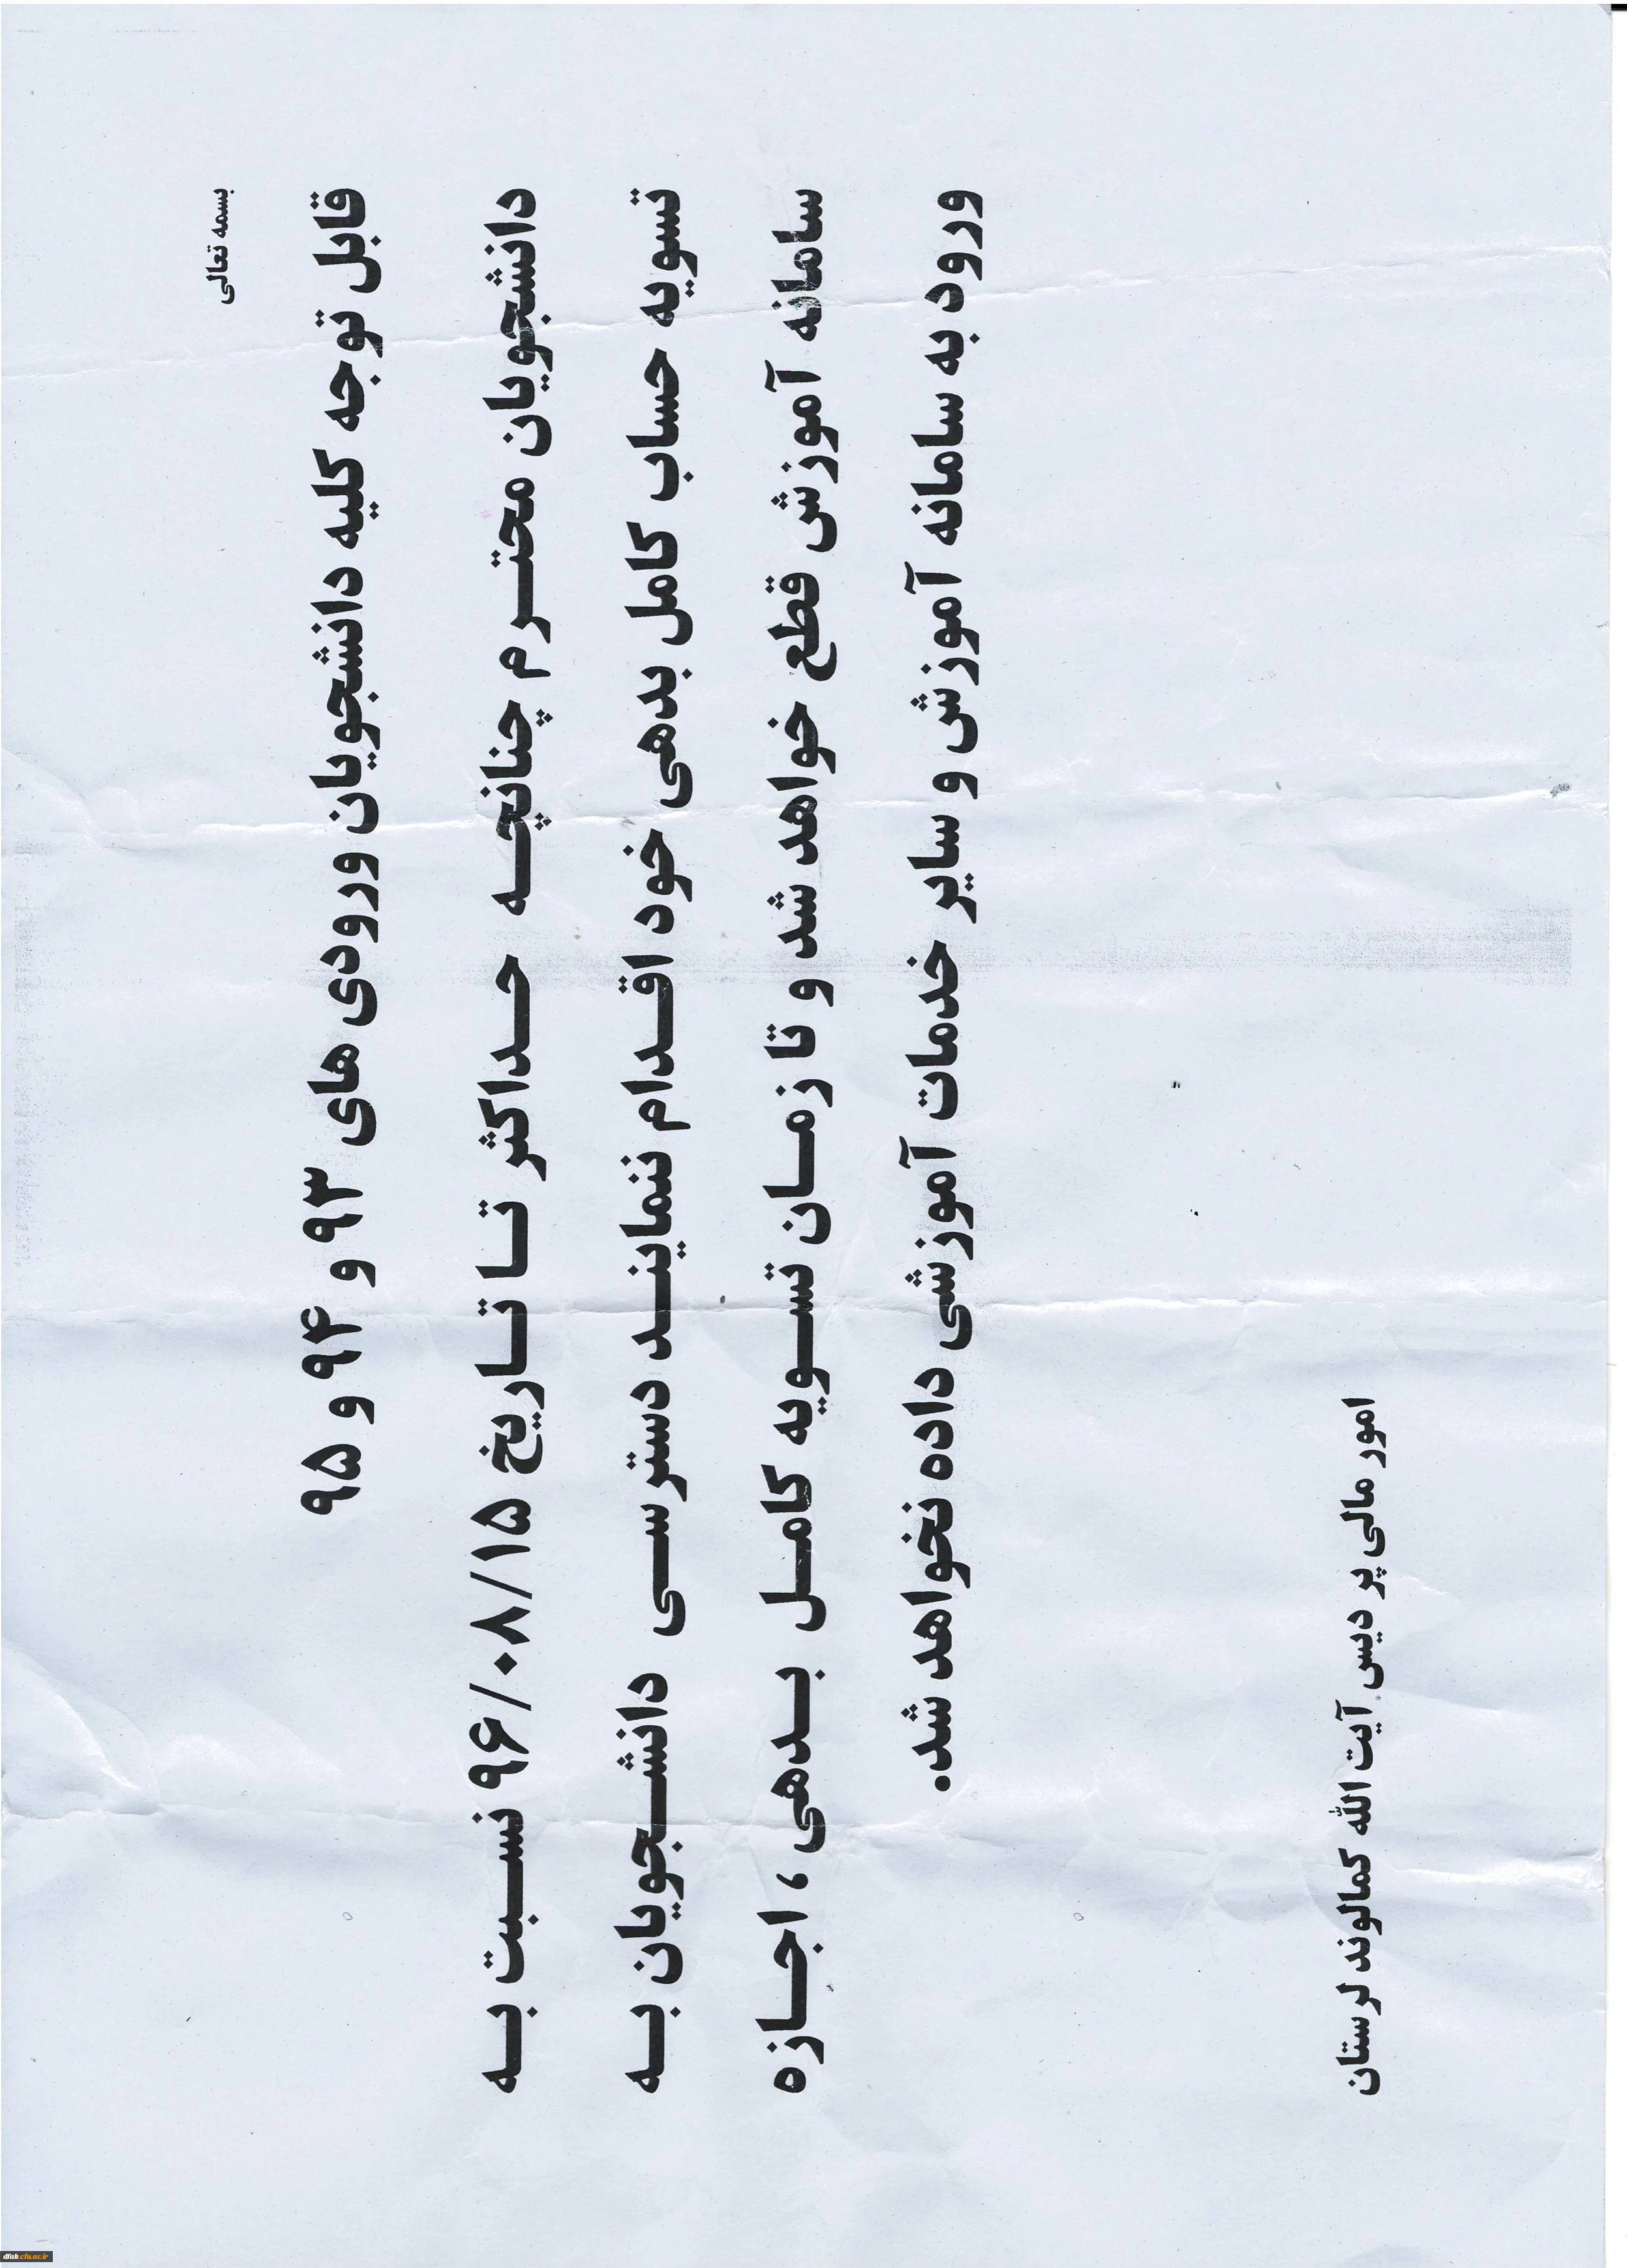 بسمه تعالی
قابل توجه کلیه دانشجویان ورودی های ۹۳ و ۹۴ و ۹۵
دانشجویان محترم چنانچه حداکثر تا تاریخ ۹۶/۰۸/۱۵ نسبت به
تسویه حساب کامل بدهی خود اقدام ننمایند دسترسی دانشجویان به
سامانه آموزش قطع خواهد شد و تا زمان تسویه کامل بدهی ، اجازه
ورود به سامانه آموزش و سایر خدمات آموزشی داده نخواهد شد.
امور مالی پر دیس آیت الله کمالوند لرستان
dfak.cfu.ac.ir